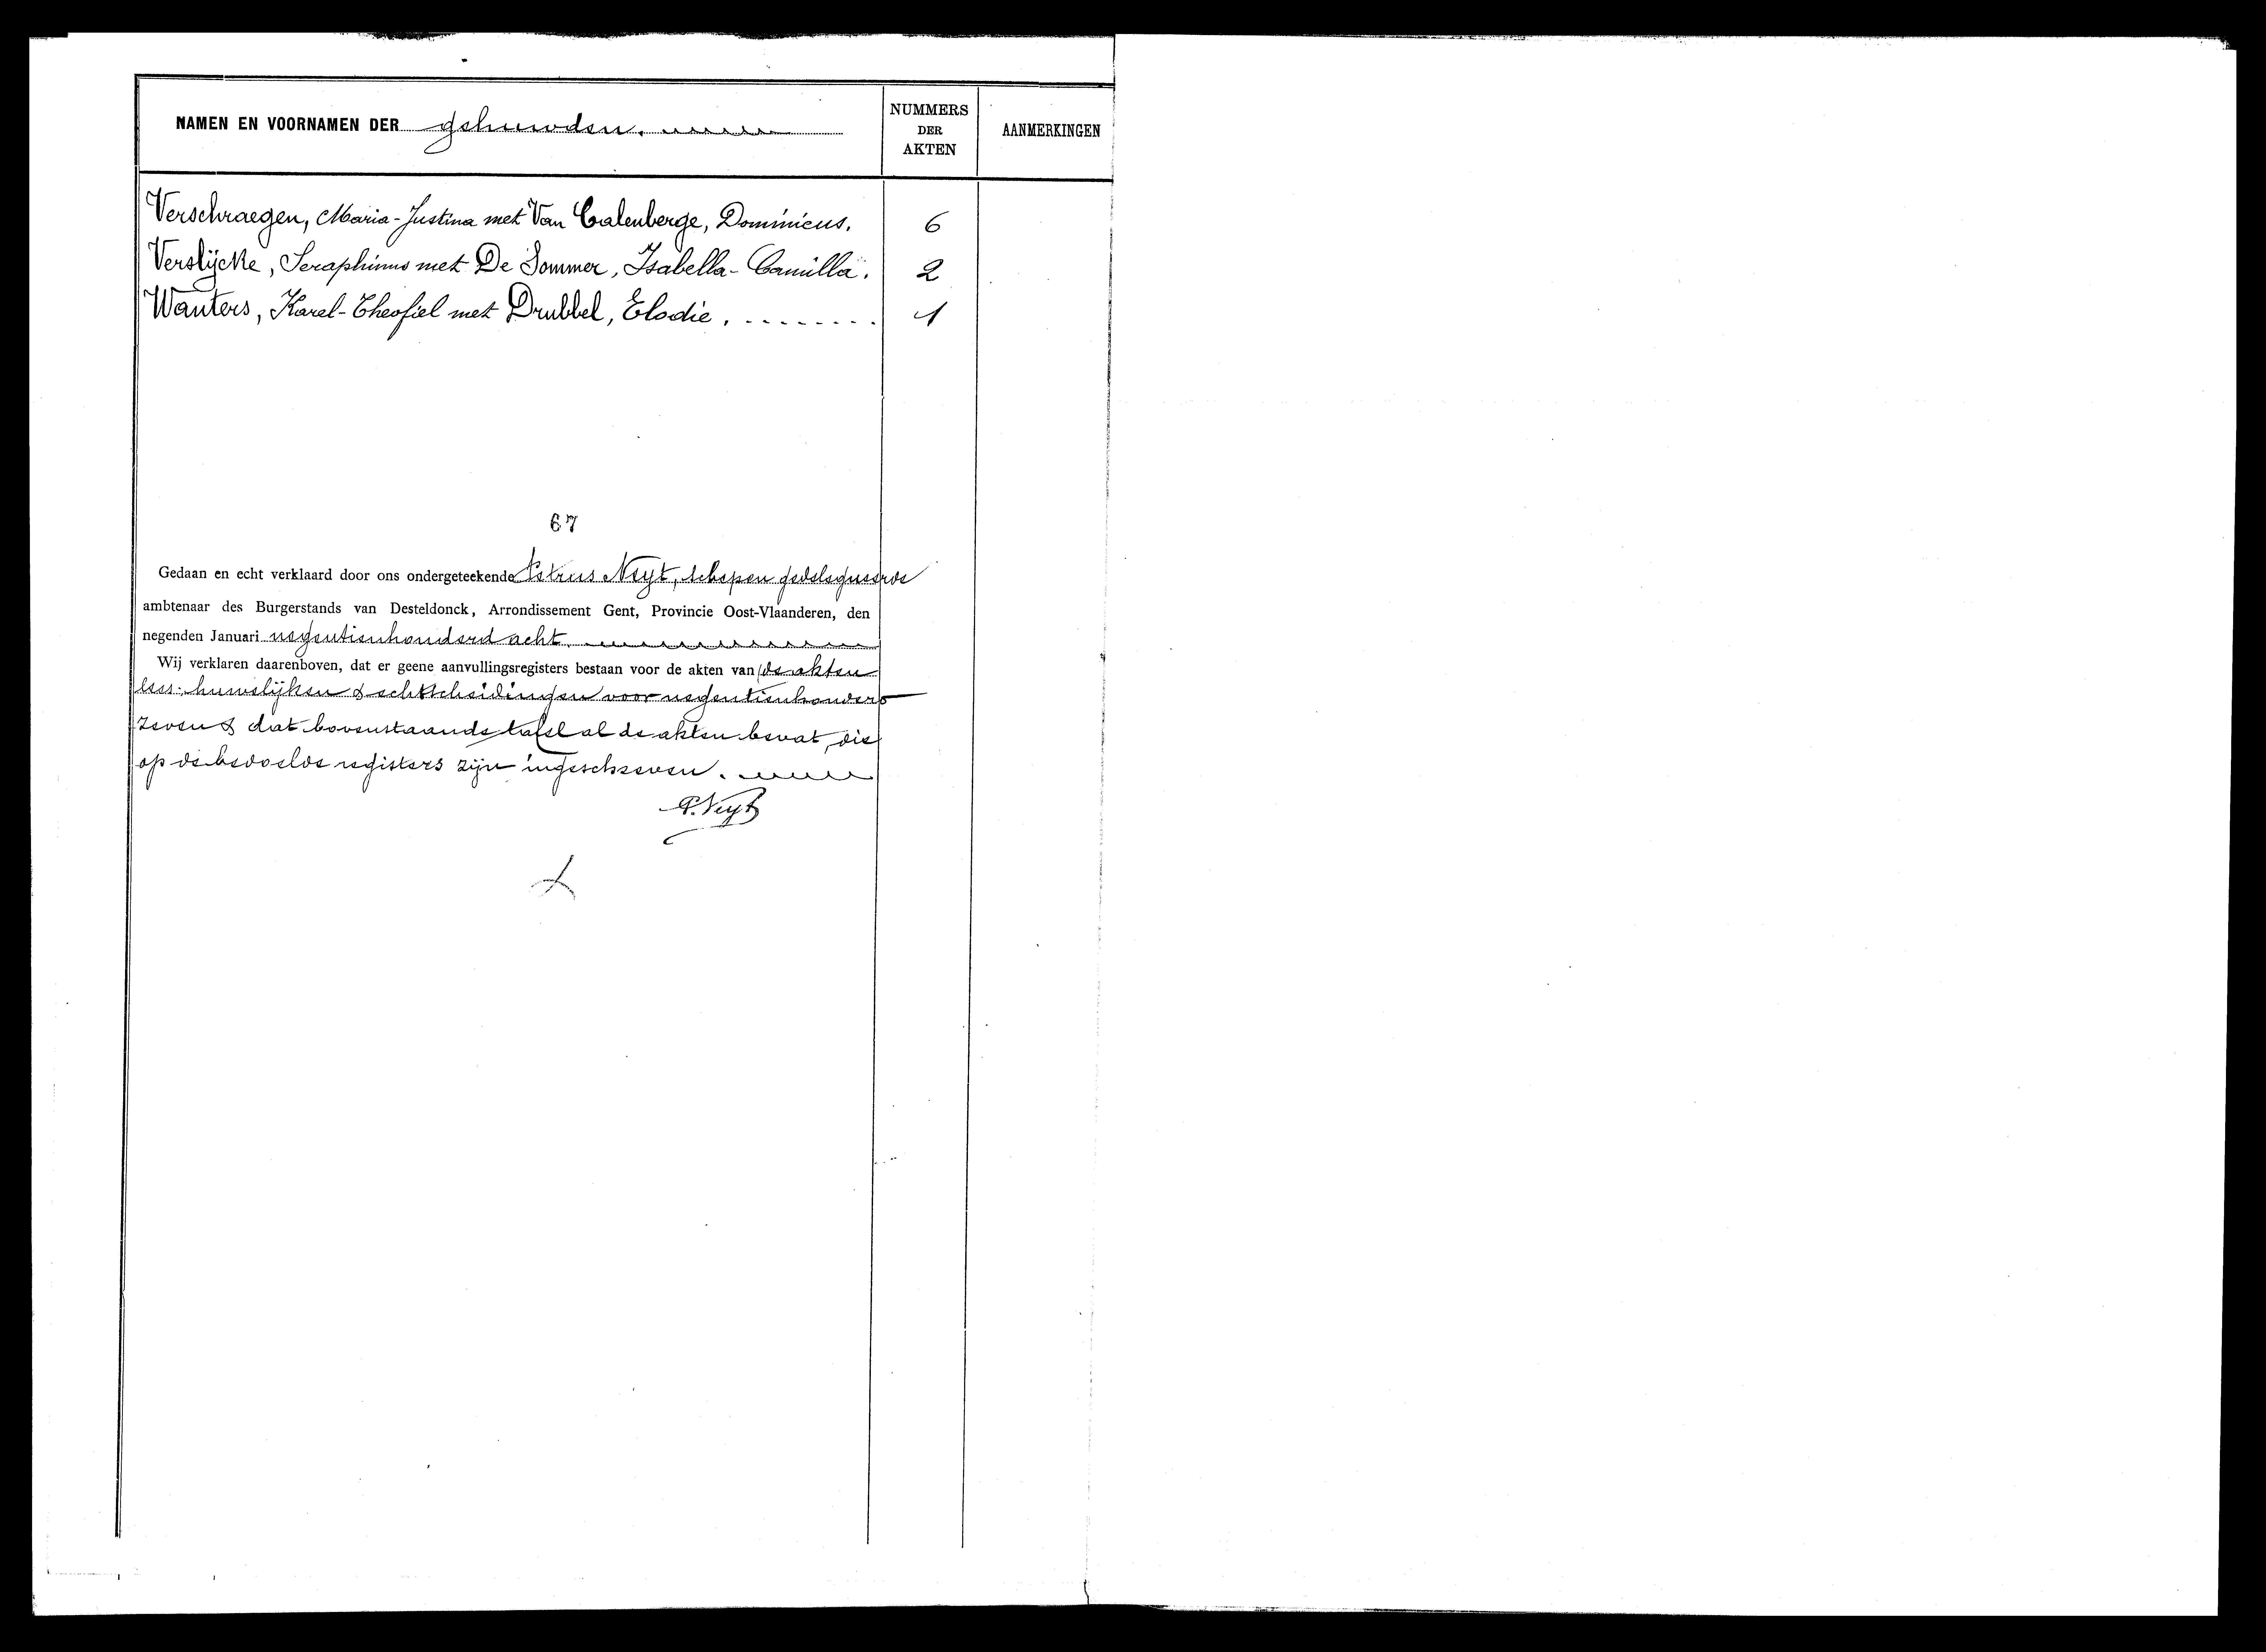 NAMEN EN VOORNAMEN DER gehuwden.
NUMMERS
DER
AKTEN
AANMERKINGEN
Verschraegen, Maria-Justina met Van Calenberge, Dominicus. 6
Verslijcke, Seraphinus met De Sommer, Isabella-Camilla. 2
Wauters, Karel-Theofiel met Drubbel, Elodie. 1
67
Gedaan en echt verklaard door ons ondergeteekende Petrus Neyt, schepen gedelegueerde
ambtenaar des Burgerstands van Desteldonck, Arrondissement Gent, Provincie Oost-Vlaanderen, den
negenden Januari negentienhonderd acht.
Wij verklaren daarenboven, dat er geene aanvullingsregisters bestaan voor de akten van de akten
huwelijken & echtscheidingen voor negentienhonderd
zeven & dat bovenstaande tafel al de akten bevat, die
op de bedoelde registers zijn ingeschreven.
P. Neyt